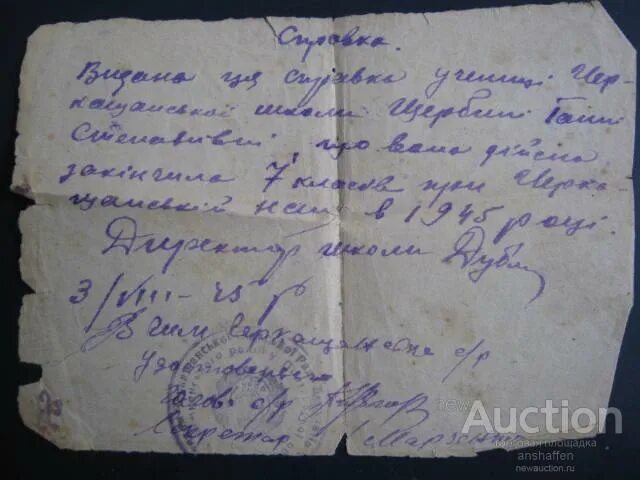 Справка.
Видана ця справка учениці Чер-
кащанської школи Щербині Ганні
Степанівні про вона дійсна
закінчила 7 класів при Черка-
щанській нсш в 1945 році.
Директор школи
3/VIII-45 р
В чим Черкащанська с/р
Голова с/р
Секретар
new Auction
торговая площадка
anshaffen
www.newauction.ru